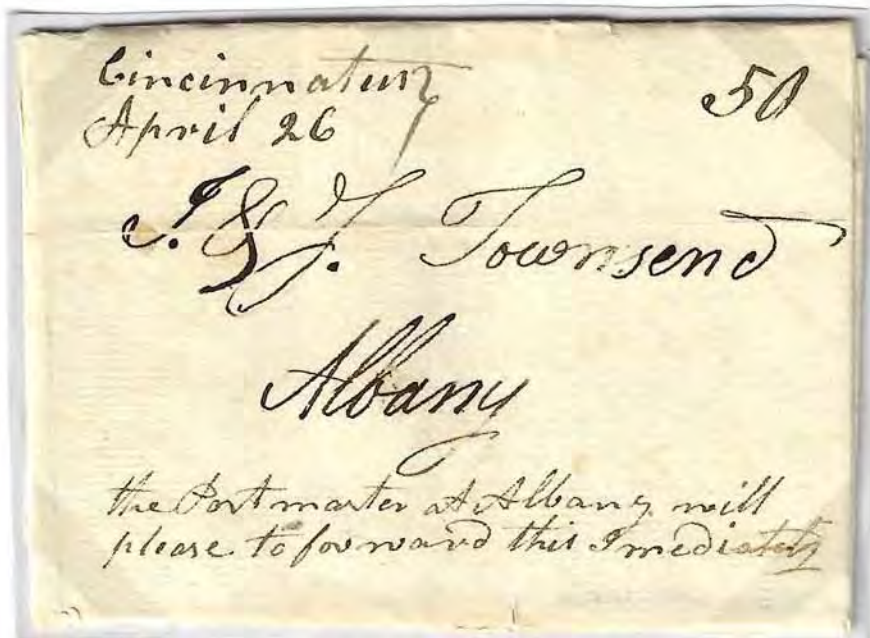 Cincinnatus
April 26
50
I. & J. Townsend
Albany
the Postmaster at Albany will
please to forward this Imediately